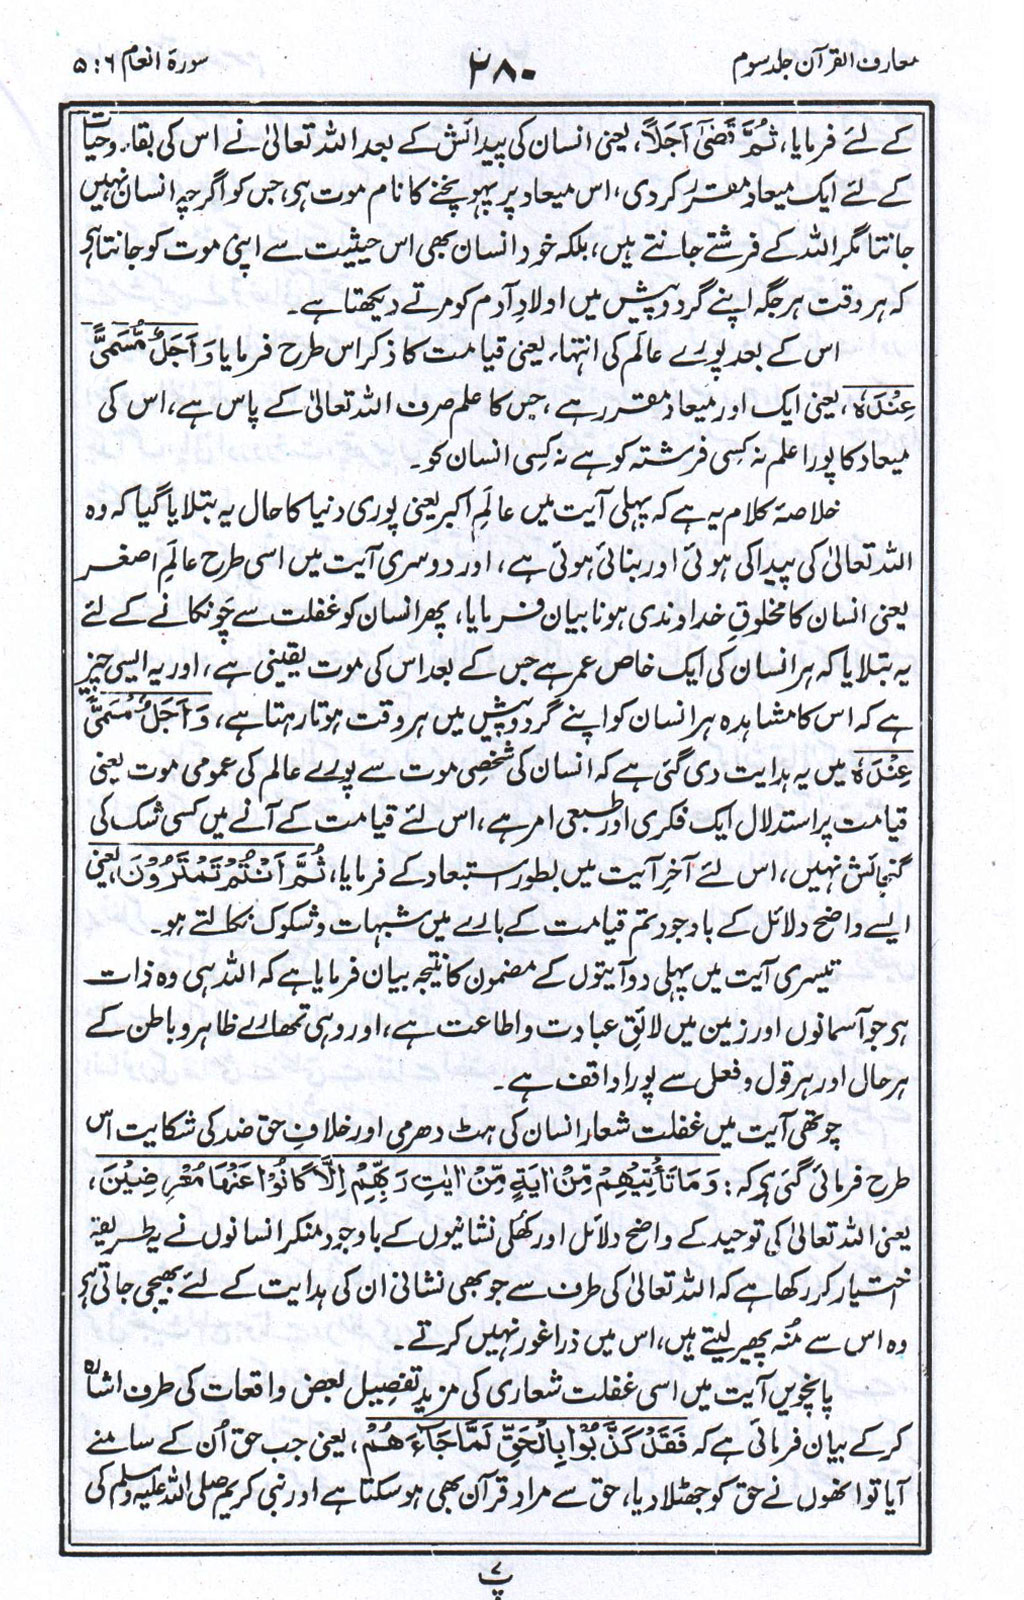 معارف القرآن جلد سوم
۲۸۰
سورۃ انعام ۶ : ۵
کے لئے فرمایا، ثُمَّ قَضٰٓى اَجَلًا، یعنی انسان کی پیدائش کے بعد اللہ تعالیٰ نے اس کی بقاء وحیات
کے لئے ایک میعاد مقرر کردی، اس میعاد پر پہونچنے کا نام موت ہی، جس کو اگرچہ انسان نہیں
جانتا مگر اللہ کے فرشتے جانتے ہیں، بلکہ خود انسان بھی اس حیثیت سے اپنی موت کو جانتا ہی
کہ ہر وقت ہر جگہ اپنے گردوپیش میں اولادِ آدم کو مرتے دیکھتا ہے۔
اس کے بعد پورے عالَم کی انتہاء یعنی قیامت کا ذکر اس طرح فرمایا وَ اَجَلٌ مُّسَمًّى
عِنْدَہٗ، یعنی ایک اور میعاد مقرر ہے، جس کا علم صرف اللہ تعالیٰ کے پاس ہے، اس کی
میعاد کا پورا علم نہ کسی فرشتہ کو ہے نہ کسی انسان کو۔
خلاصۂ کلام یہ ہے کہ پہلی آیت میں عالَمِ اکبر یعنی پوری دنیا کا حال یہ بتلایا گیا کہ وہ
اللہ تعالیٰ کی پیدا کی ہوئی اور بنائی ہوئی ہے، اور دوسری آیت میں اسی طرح عالَمِ اصغر
یعنی انسان کا مخلوقِ خداوندی ہونا بیان فرمایا، پھر انسان کو غفلت سے چونکانے کے لئے
یہ بتلایا کہ ہر انسان کی ایک خاص عمر ہے جس کے بعد اس کی موت یقینی ہے، اور یہ ایسی چیز
ہے کہ اس کا مشاہدہ ہر انسان کو اپنے گردوپیش میں ہر وقت ہوتا رہتا ہے، وَ اَجَلٌ مُّسَمًّى
عِنْدَہٗ میں یہ ہدایت دی گئی ہے کہ انسان کی شخصی موت سے پورے عالم کی عمومی موت یعنی
قیامت پر استدلال ایک فکری اور طبعی امر ہے، اس لئے قیامت کے آنے میں کسی شک کی
گنجائش نہیں، اس لئے آخرِ آیت میں بطور استبعاد کے فرمایا، ثُمَّ اَنْتُمْ تَمْتَرُوْنَ، یعنی
ایسے واضح دلائل کے باوجود تم قیامت کے بارے میں شبہات و شکوک نکالتے ہو۔
تیسری آیت میں پہلی دو آیتوں کے مضمون کا نتیجہ بیان فرمایا ہے کہ اللہ ہی وہ ذات
ہی جو آسمانوں اور زمین میں لائقِ عبادت و اطاعت ہے، اور وہی تمھارے ظاہر و باطن کے
ہر حال اور ہر قول و فعل سے پورا واقف ہے۔
چوتھی آیت میں غفلت شعار انسان کی ہٹ دھرمی اور خلافِ حق ضد کی شکایت اس
طرح فرمائی گئی ہی کہ: وَ مَا تَاْتِیْهِمْ مِّنْ اٰیَةٍ مِّنْ اٰیٰتِ رَبِّهِمْ اِلَّا کَانُوْا عَنْهَا مُعْرِضِیْنَ،
یعنی اللہ تعالیٰ کی توحید کے واضح دلائل اور کھلی نشانیوں کے باوجود منکر انسانوں نے یہ طریقہ
اختیار کر رکھا ہے کہ اللہ تعالیٰ کی طرف سے جو بھی نشانی ان کی ہدایت کے لئے بھیجی جاتی ہی
وہ اس سے مُنہ پھیر لیتے ہیں، اس میں ذرا غور نہیں کرتے۔
پانچویں آیت میں اسی غفلت شعاری کی مزید تفصیل بعض واقعات کی طرف اشارہ
کرکے بیان فرمائی ہے کہ فَقَدْ کَذَّبُوْا بِالْحَقِّ لَمَّا جَآءَهُمْ، یعنی جب حق اُن کے سامنے
آیا تو انھوں نے حق کو جھٹلا دیا، حق سے مراد قرآن بھی ہوسکتا ہے اور نبی کریم صلی اللہ علیہ وسلم کی
پ ۷